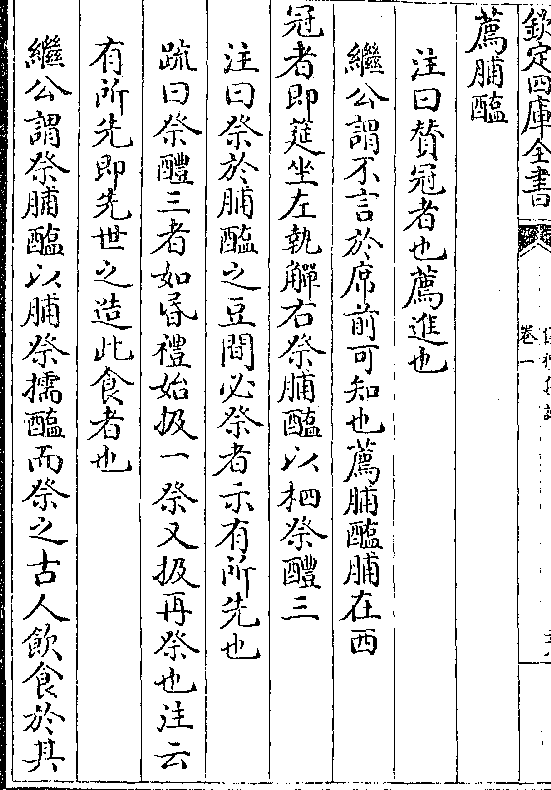 欽定四庫全書
卷一
薦脯醢
注曰賛冠者也薦進也
繼公謂不言於席前可知也薦脯醢脯在西
冠者即筵坐左執觶右祭脯醢以柶祭醴三
注曰祭於脯醢之豆間必祭者示有所先也
疏曰祭醴三者如昏禮始扱一祭又扱再祭也注云
有所先即先世之造此食者也
繼公謂祭脯醢以脯祭擩醢而祭之古人飲食於其